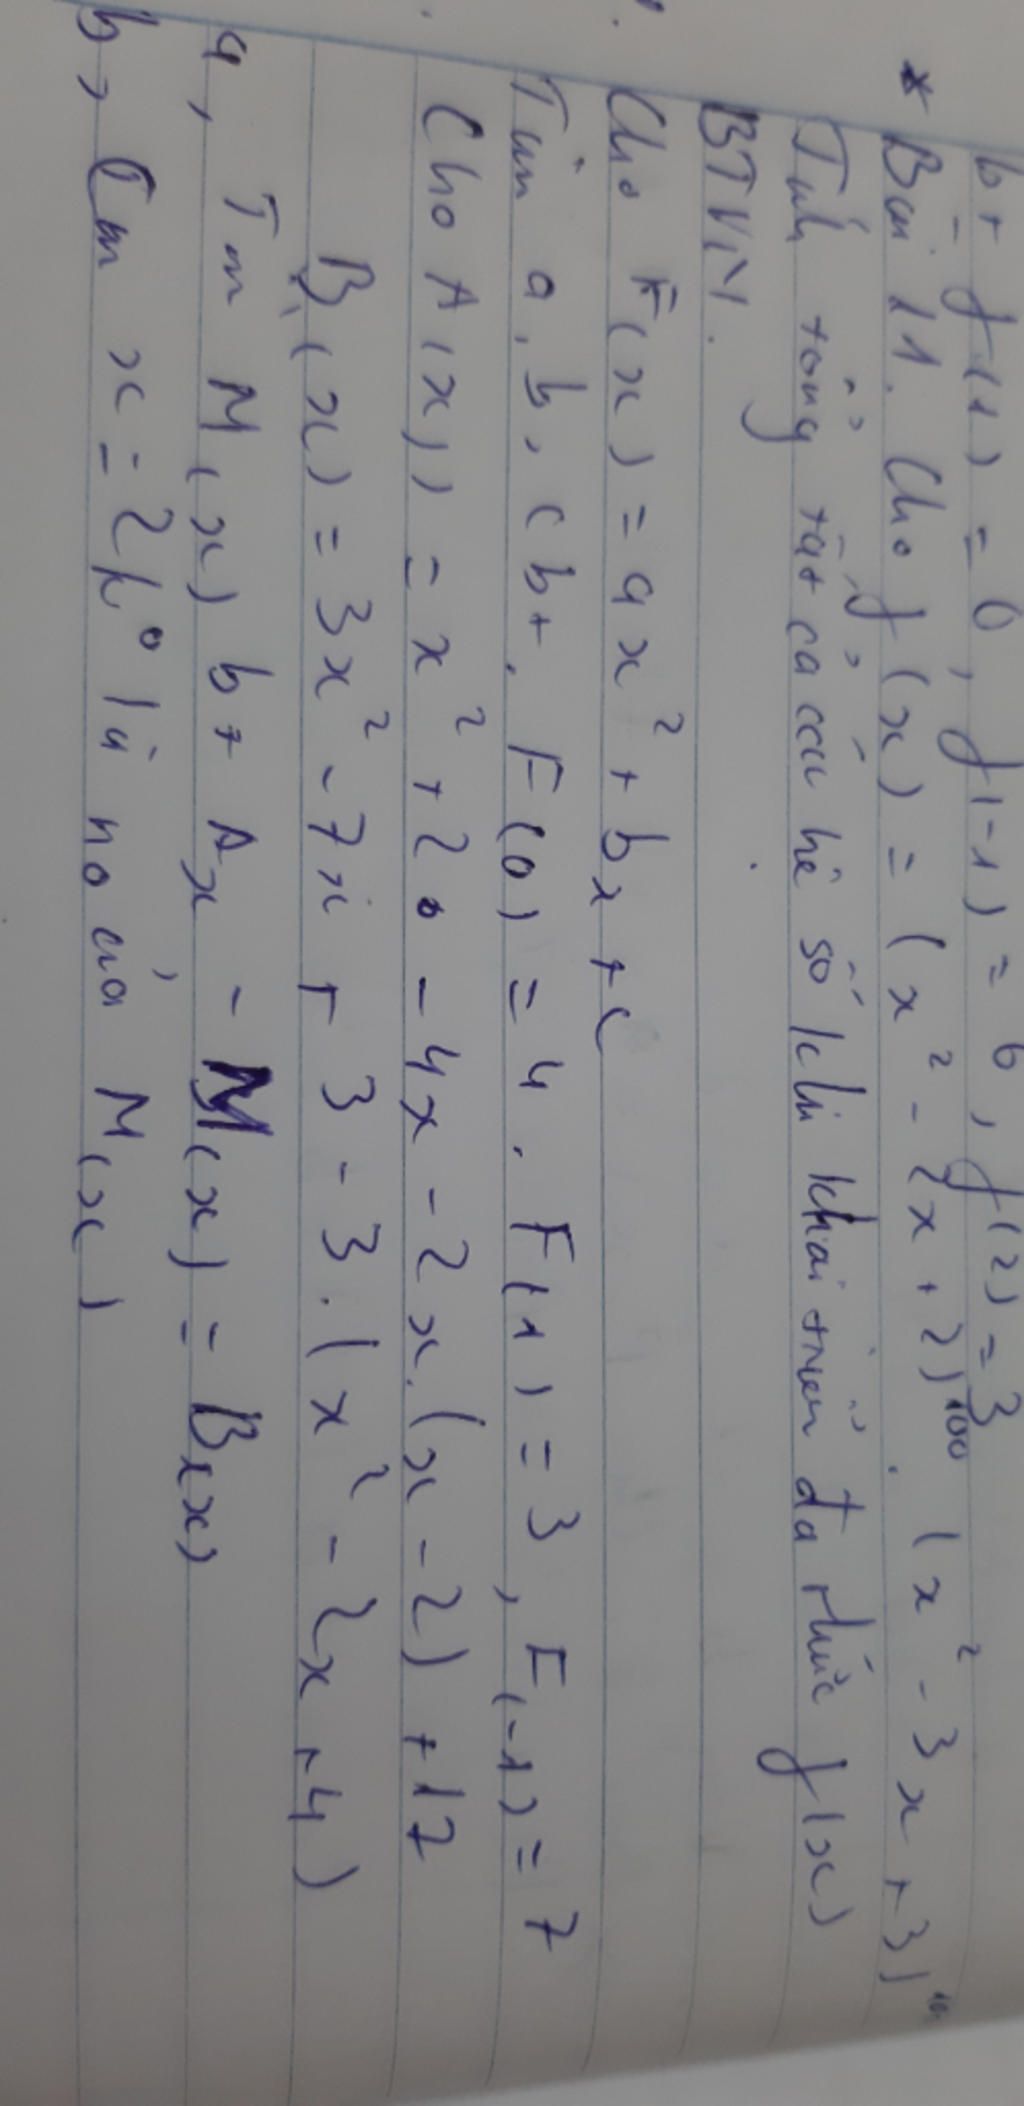 bt f(1) = 0, f(-1) = 6, f(2) = 3
* Bài 11. Cho f(x) = (x² - 2x + 2)¹⁰⁰ . (x² - 3x + 3)
Tính tổng tất cả các hệ số khi khai triển đa thức f(x)
BTVN.
Cho F(x) = ax² + bx + c
Tìm a, b, c bt. F(0) = 4. F(1) = 3, F(-1) = 7
Cho A(x) = x² + 20 - 4x - 2x.(x - 2) + 17
B(x) = 3x² - 7x + 3 - 3.(x² - 2x + 4)
a, Tìm M(x) bt Ax - M(x) = B(x)
b, Cm x = 2 là no của M(x)